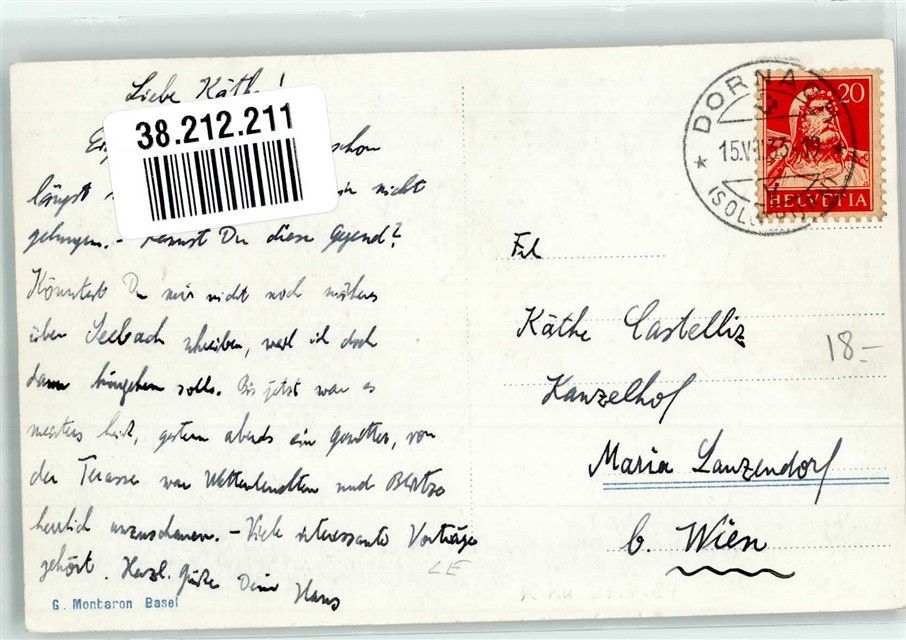 Liebe Käthe!
38.212.211
schon
längst nicht
gelungen. - Kennst Du diese Gegend?
Könntest Du mir nicht noch näheres
über Seebach schreiben, weil ich doch
dann hingehen solle. Bis jetzt war es
meistens heiß, gestern abends ein Gewitter, von
der Terasse war Wetterleuchten und Blitze
herrlich anzuschauen. - Viele interessante Vorträge
gehört. Herzl. Grüße Dein Hans
LE
G. Montaron Basel
DORNACH
15.V 35
(SOLOTHURN)
20
HELVETIA
Frl
Käthe Castelliz
Kanzelhof
Maria Lanzendorf
b. Wien
18-